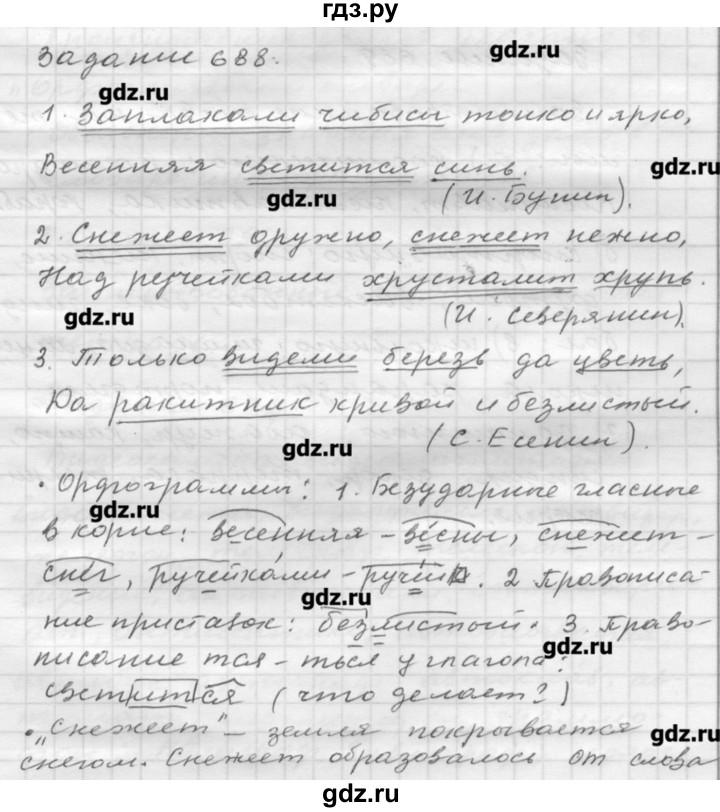 гдз.ру
Задание 688.
gdz.ru
gdz.ru
1. Заплакали чибисы тонко и ярко,
Весенняя светится синь.
gdz.ru
gdz.ru
(И. Бунин).
2. Снежеет дружно, снежеет нежно,
Над ручейками хрусталит хрупь.
gdz.ru
(И. Северянин).
3. Только видели березь да цветь,
Да ракитник кривой и безлистый.
gdz.ru
(С. Есенин).
• Орфограммы: 1. Безударные гласные
gdz.ru
в корне: весенняя – вёсны, снежеет –
снег, ручейками – ручей. 2 Правописа-
gdz.ru
ние приставок: безлистый. 3. Право-
gdz.ru
писание тся – ться у глагола:
светится (что делает?)
• "Снежеет" – земля покрывается
gdz.ru
снегом. Снежеет образовалось от слова
gdz.ru